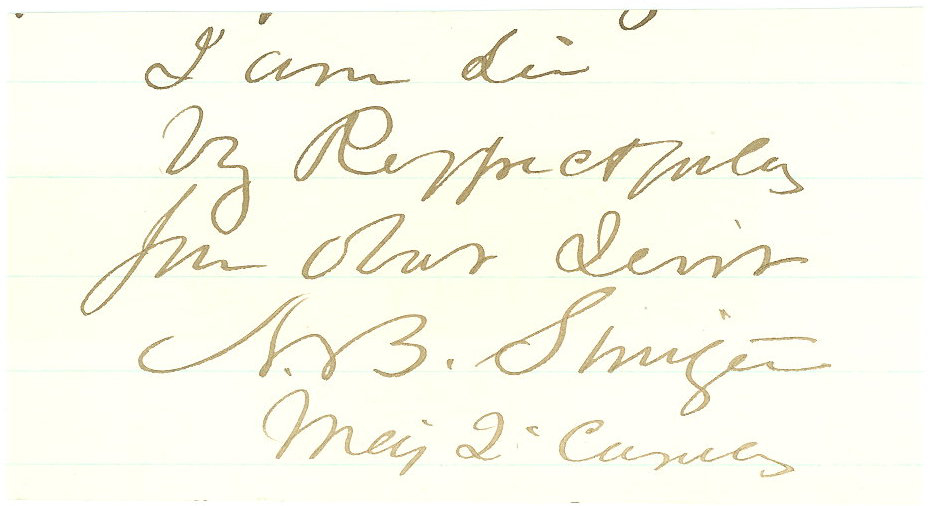 I am Sir
Vy Respectfully
Your Obdt Servt
N. B. Sweitzer
Maj 2d Cavalry